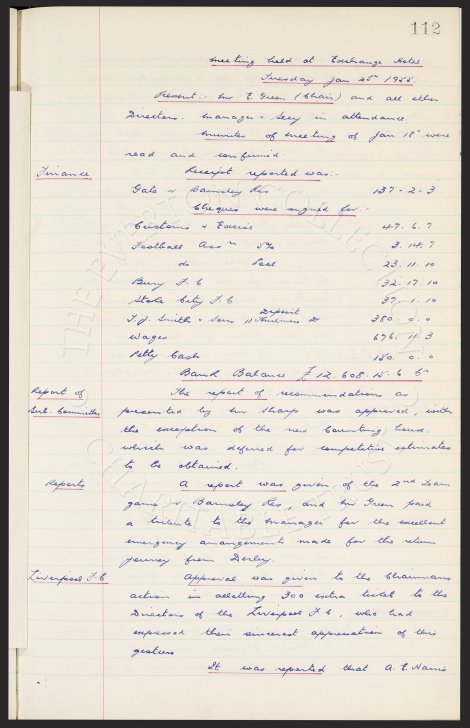 112
Meeting held at Exchange Hotel
Tuesday Jan 25th 1955.
Present:- Mr E. Green (Chair) and all other
Directors. Manager & Secy in attendance.
Minutes of Meeting of Jan 18th were
read and confirmed.
Finance
Receipt reported was:-
Gate v Barnsley Res 137-2-3
Cheques were signed for:-
Customs & Excise 47.6.7
Football Assn 5% 3.14.7
do Pool 23.11.10
Bury F.C 32.17.10
Stoke City F.C 37.1.10
T.J. Smith & Sons Deposit 380.0.0
Wages 676.11.3
Petty Cash 150.0.0
Bank Balance £12.608.15.6
Report of
Sub. Committee
The report of recommendations as
presented by Mr Sharp was approved, with
the exception of the new Counting house,
which was deferred for competitive estimates
to be obtained.
Reports
A report was given of the 2nd Team
game v Barnsley Res, and Mr Green paid
a tribute to the Manager for the excellent
emergency arrangements made for the return
journey from Derby.
Liverpool F.C
Approval was given to the Chairmans
action in allotting 300 extra ticket to the
Directors of the Liverpool F.C, who had
expressed their sincerest appreciation of this
gesture
It was reported that A. E. Harris
THE EVERTON COLLECTION
CHARITABLE TRUST